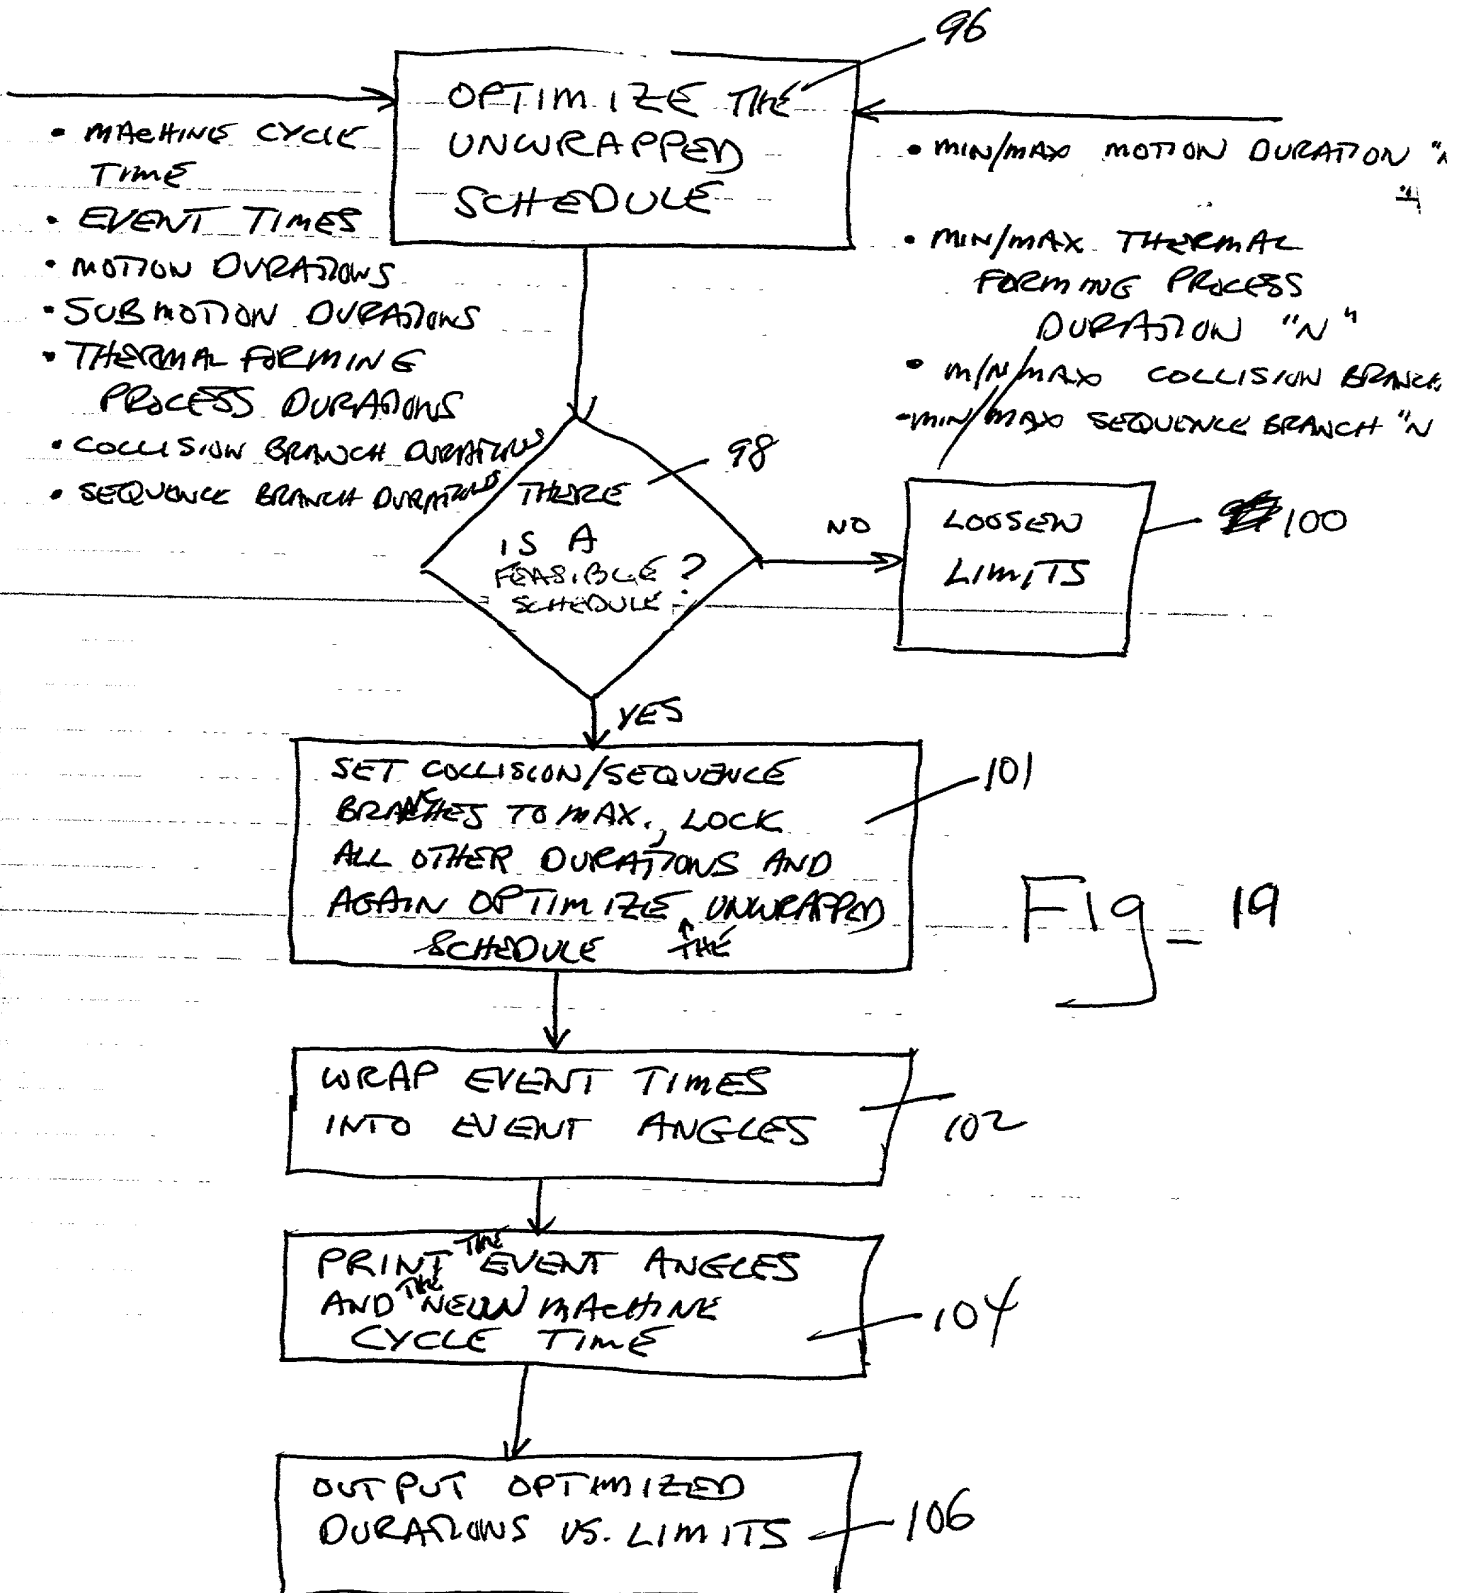 96
OPTIMIZE THE
UNWRAPPED
SCHEDULE
• MACHINE CYCLE
TIME
• EVENT TIMES
• MOTION DURATIONS
• SUBMOTION DURATIONS
• THERMAL FORMING
PROCESS DURATIONS
• COLLISION BRANCH DURATIONS
• SEQUENCE BRANCH DURATIONS
• MIN/MAX MOTION DURATION "N
• MIN/MAX THERMAL
FORMING PROCESS
DURATION "N"
• MIN/MAX COLLISION BRANCH
• MIN/MAX SEQUENCE BRANCH "N
98
THERE
IS A
FEASIBLE ?
SCHEDULE
NO
LOOSEN
LIMITS
100
YES
SET COLLISION/SEQUENCE
BRANCHES TO MAX., LOCK
ALL OTHER DURATIONS AND
AGAIN OPTIMIZE THE UNWRAPPED
SCHEDULE
101
Fig_19
WRAP EVENT TIMES
INTO EVENT ANGLES
102
PRINT THE EVENT ANGLES
AND THE NEW MACHINE
CYCLE TIME
104
OUTPUT OPTIMIZED
DURATIONS VS. LIMITS
106